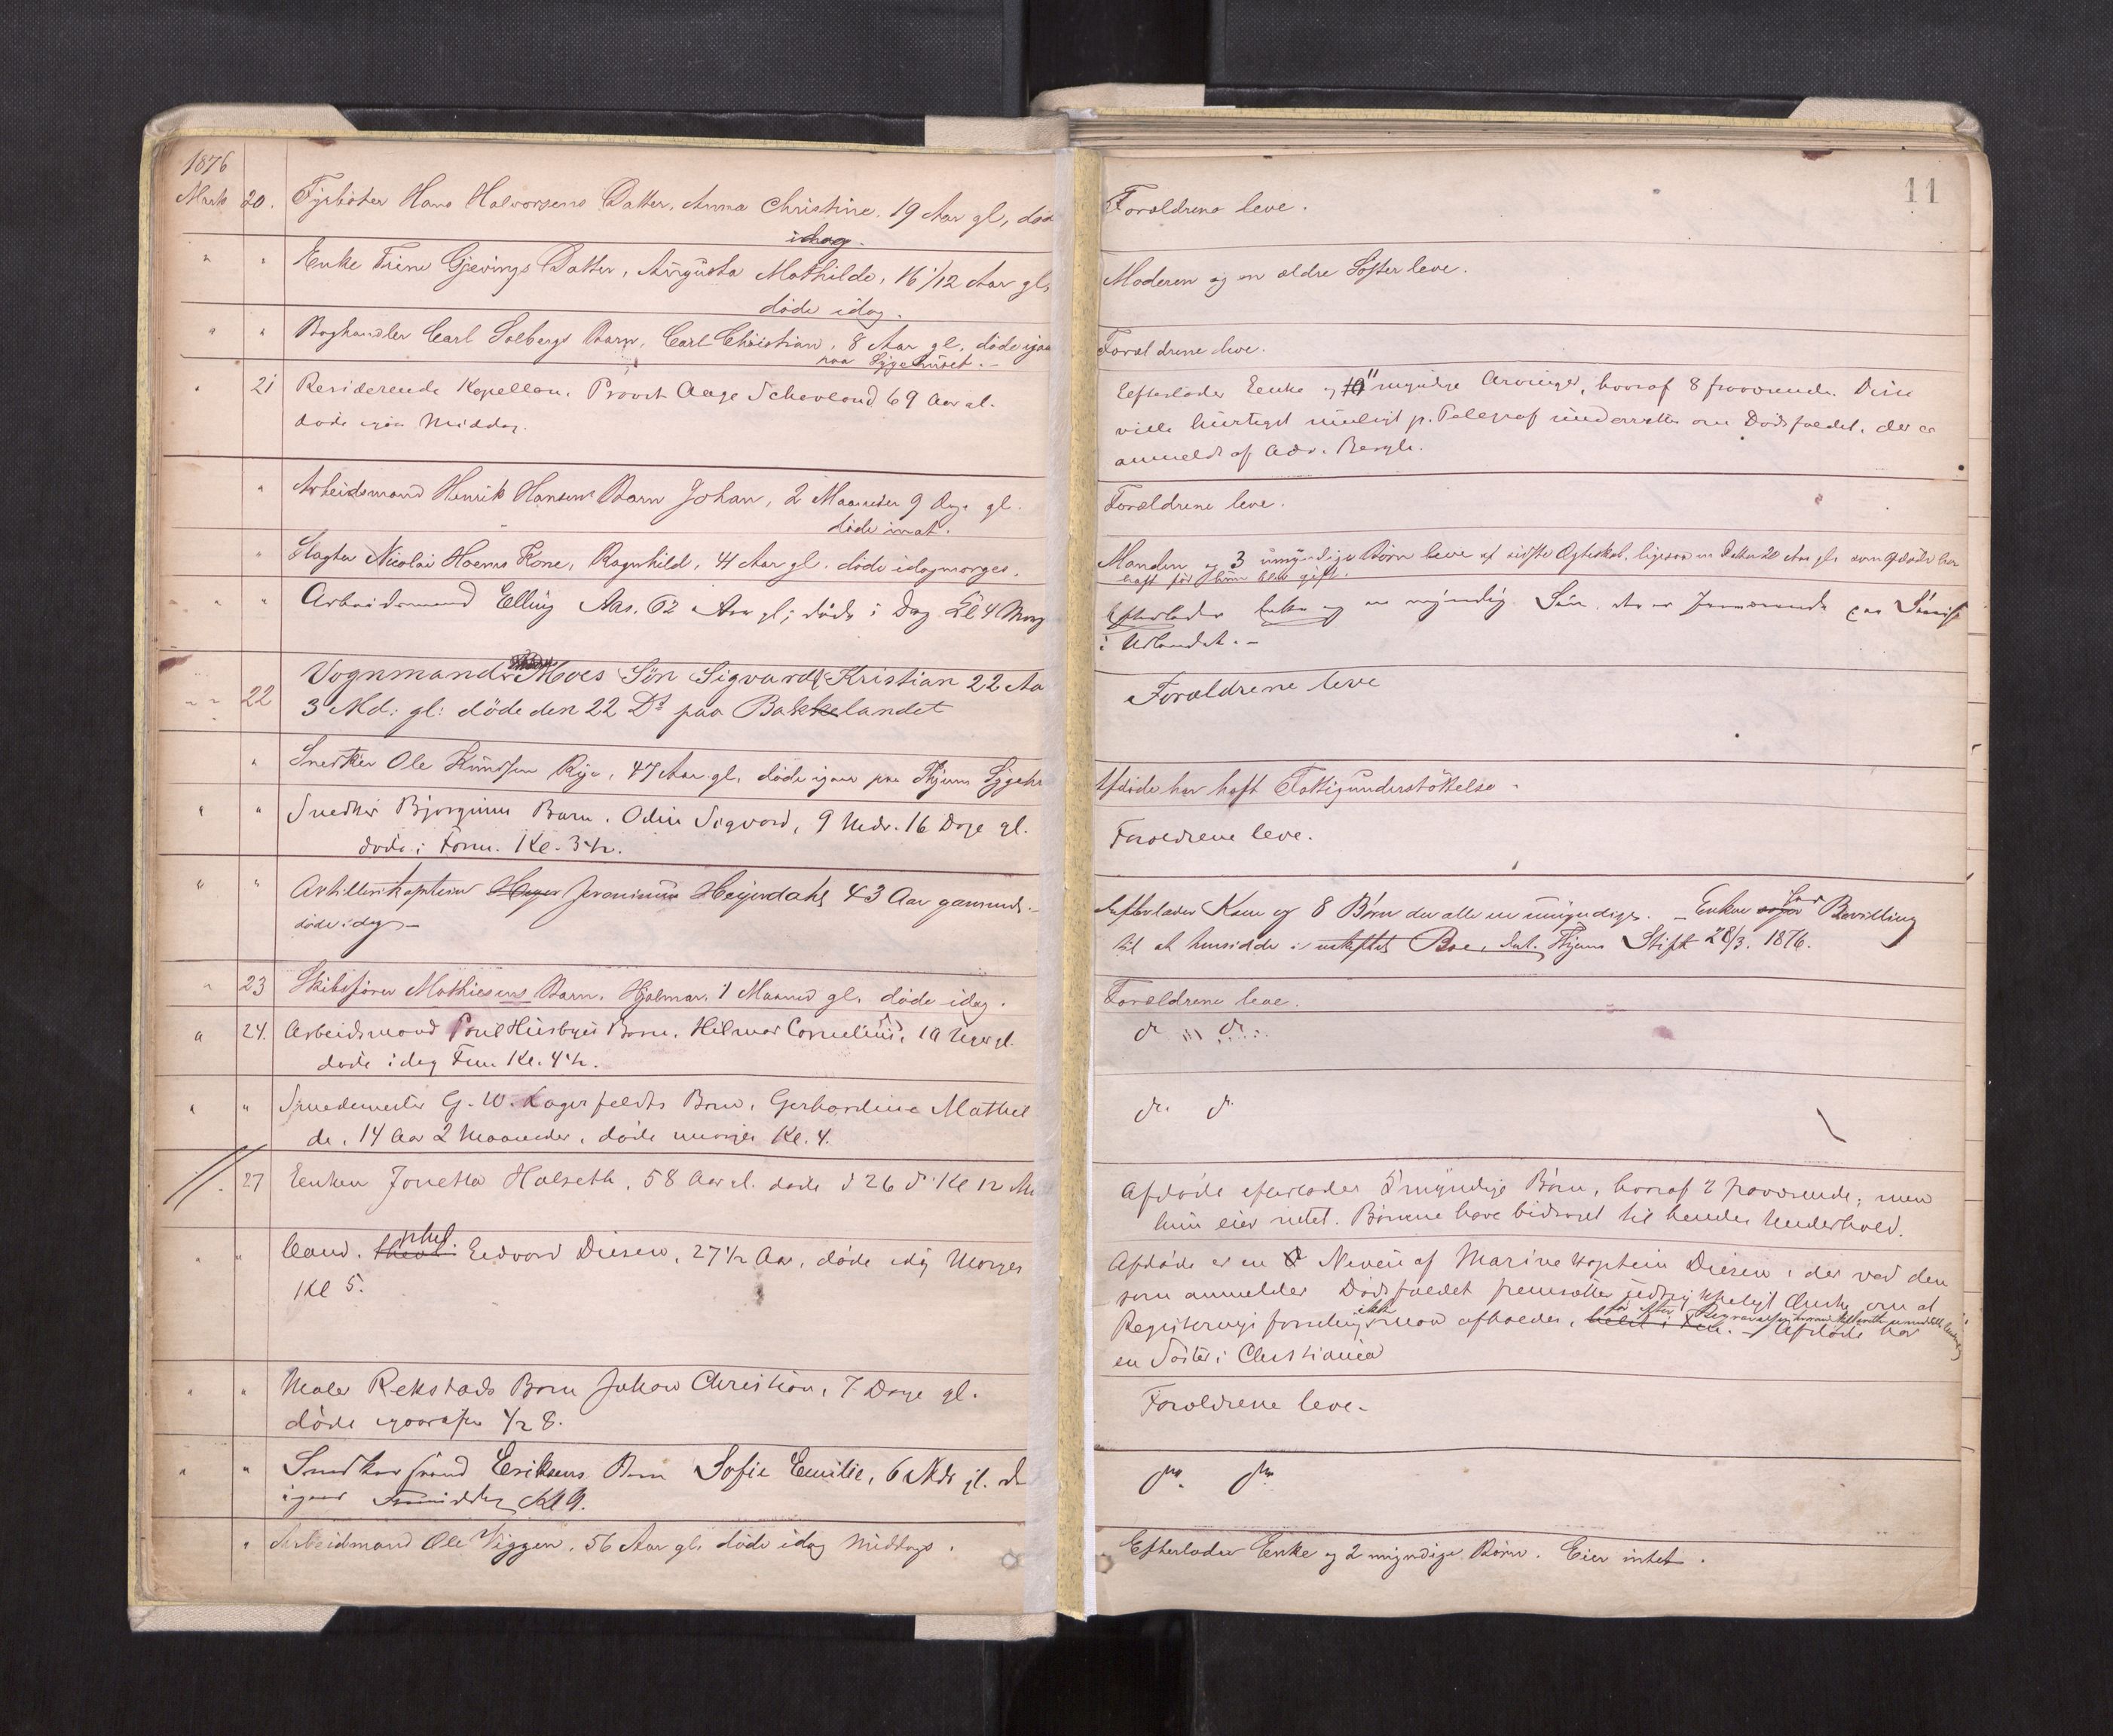 1876
Marts 20. Fyrbøter Hans Halvorsens Datter, Anna Christine. 19 Aar gl, død
idag.
" " Enke Trine Gjevings Datter, Augusta Mathilde, 16 1/12 Aar gl,
døde idag.
" " Boghandler Carl Solbergs Barn, Carl Christian, 8 Aar gl, døde igaar
paa Sygehuset. -
" 21 Residerende Kapellan, Provst Aage Schavland 69 Aar gl.
døde igaar Middag.
" Arbeidsmand Henrik Hansens Barn Johan, 2 Maaneder 9 Dage gl.
døde inat.
" Slagter Nicolai Hoems Kone, Ragnhild, 41 Aar gl. døde idagmorges.
" " Arbeidsmand Elling Aas, 62 Aar gl; døde i Dag Kl 4 Morg
Vognmand Moes Søn Sigvard Kristian 22 Aa
" " 22 3 Md: gl: døde den 22 Ds paa Bakkelandet
" Snedker Ole Knudsen Rye, 47 Aar gl, døde igaar paa Thjems Sygeh
" " Snedker Bjørgums Barn, Odin Sigvard, 9 Mdr. 16 Dage gl.
døde i Form. Kl. 3 1/2.
" " Artillerikaptein Heyer Jeronimus Heyerdahl 43 Aar gammel -
døde idag -
" 23 Skibsfører Mathiesens Barn, Hjalmar, 1 Maaned gl, døde idag.
" 24. Arbeidsmand Poul Husbyes Barn, Hilmar Cornelius, 10 Uger gl.
døde idag Fm. Kl. 4 1/2.
" " Smedemester G. W. Lagerfeldts Barn, Gerhardine Mathil
de, 14 Aar 2 Maaneder, døde imorges Kl. 4.
" 27 Enken Jonetta Halseth, 58 Aar gl. døde d 26 ds Kl 12 Mi
" " Cand. theol. phil. Edvard Diesen, 27 1/2 Aar, døde idag Morges
Kl 5.
" " Maler Rekstads Barn Johan Christian, 7 Dage gl.
døde igaaraftes 1/2 8.
" " Snedkersvend Eriksens Barn Sofie Emilie, 6 Mdr gl. dø
igaar Formiddag Kl 9.
" Arbeidmand Ole Viggen, 56 Aar gl, døde idag Middags.
11
Forældrene leve.
Moderen og en ældre Søster leve.
Forældrene leve.
Efterlader Enke og 10 11 myndige Arvinger, hvoraf 8 fraværende. Disse
ville hurtigst muligt p. Telegraf underrettes om Dødsfaldet, der er
anmeldt af Adv. Bergh.
Forældrene leve.
Manden og 3 umyndige Børn leve af sidste Ægteskab, ligesaa en Datter 20 Aar gl. som Afdøde har
haft før hun blev gift.
Efterlader Enke og en myndig Søn, der er fraværende paa Sømand
i Udlandet. -
Forældrene leve
Afdøde har haft Fattigunderstøttelse -
Forældrene leve.
Efterlader Kone og 8 Børn der alle er umyndige. - Enken har Bevilling
til at hensidde i uskiftet Boe, dat. Thjems Stift 28/3. 1876.
Forældrene leve.
do do
do. do
Afdøde efterlader 5 myndige Børn, hvoraf 2 fraværende; men
hun eier intet. Børnene have bidraget til hendes Underhold.
Afdøde er en Neveu af Marine kaptein Diesen, der ved den
som anmelder Dødsfaldet fremsætter udtrykkeligt Ønske om at
Registreringsforretning ikke maa afholdes, før efter Begravelsen. - Afdøde har
en Søster i Christiania
Forældrene leve.
do. do
Efterlader Enke og 2 myndige Børn. Eier intet.